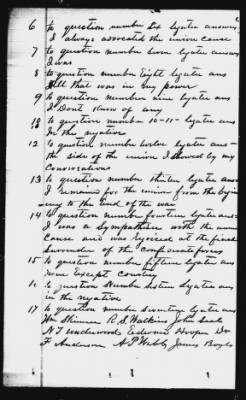 6 to question number six Lyater answers
I always advocated the union cause
7 to question number seven Lyater answers
I was
8 to question number Eight Lyater ans
All that was in my power
9 to question number nine Lyater ans
I Dont Know of any
10 to question number 10-11- Lyater ans
In the negative
12 to question number twelve Lyater ans-
the side of the union I showed by my
Conversations
13 to question number thirteen Lyater ans
I remained for the union from the begin
ing to the End of the war
14 to question number fourteen Lyater ans-
I was a Sympathiser with the union
Cause and was rejoiced at the final
Surrender of the Confederate forces
15 to question number fifteen Lyater ans
none Except country
16 to question number sixteen Lyater ans
in the negative
17 to question number seventeen Lyater ans
Wm Skinner R. S. Watkins John Seale
N T underwood Edward Hooper Dr
F Anderson A P Webb James Boyls